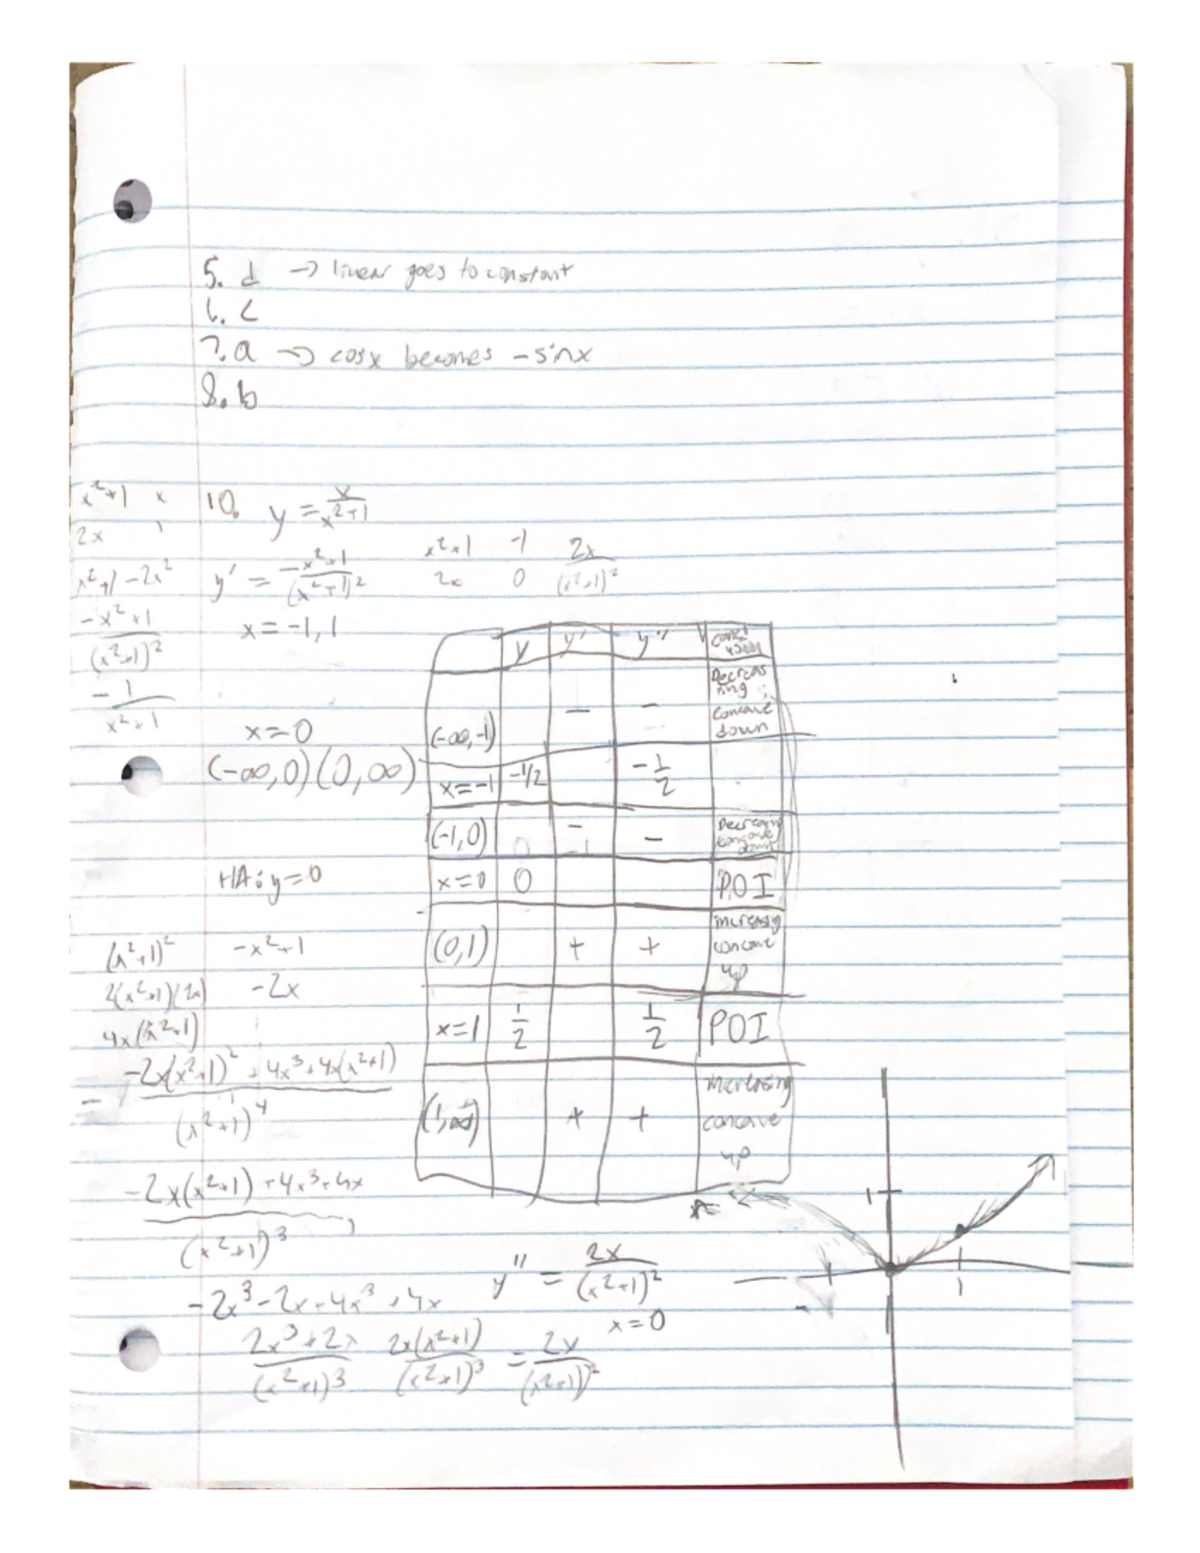 5. d → linear goes to constant
6. c
7. a → cosx becomes -sinx
8. b
x²+1 x
2x 1
x²+1-2x²
-x²+1
(x²+1)²
-1
x²+1
10. y = x/(x²+1)
y' = (-x²+1)/(x²+1)²
x = -1, 1
x²+1 -1 2x/(x²+1)²
2x 0
x=0
(-∞,0)(0,∞)
HA: y=0
y y' y''
(-∞,-1) - - Decreasing; concave down
x=-1 -1/2 -1/2
(-1,0) - - Decreasing concave down
x=0 0 POI
(0,1) + + increasing concave up
x=1 1/2 1/2 POI
(1,∞) + + increasing concave up
(x²+1)² -x²+1
2(x²+1)(2x) -2x
4x(x²+1)
-2x(x²+1)² + 4x³+4x(x²+1)
(x²+1)⁴
-2x(x²+1) + 4x³+4x
(x²+1)³
-2x³-2x+4x³+4x
(2x³+2x)/(x²+1)³ 2x(x²+1)/(x²+1)³ = 2x/(x²+1)²
y'' = 2x/(x²+1)²
x=0
1
1